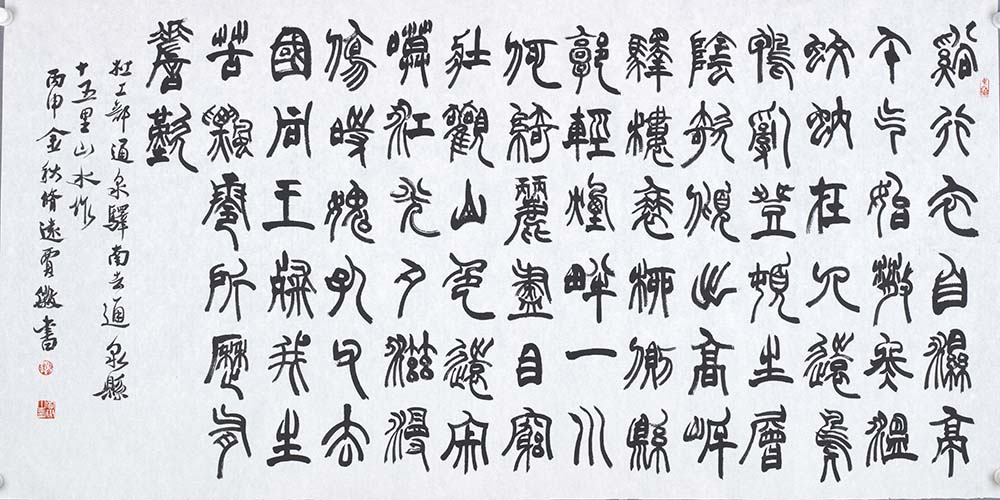 谿行衣自濕亭
午气始散冬溫
蚊蚋在人遠鳧
鴨亂登頓生層
陰欹傾出高岸
驛樓衰柳側縣
郭輕煙畔一川
何綺麗盡目窮
壯觀山色遠寂
嗼江光夕滋漫
傷時愧孔父去
國同王粲我生
苦飄零所歷有
嗟歎
杜工部通泉驛南去通泉縣
十五里山水作
丙申金秋脩遠賈書